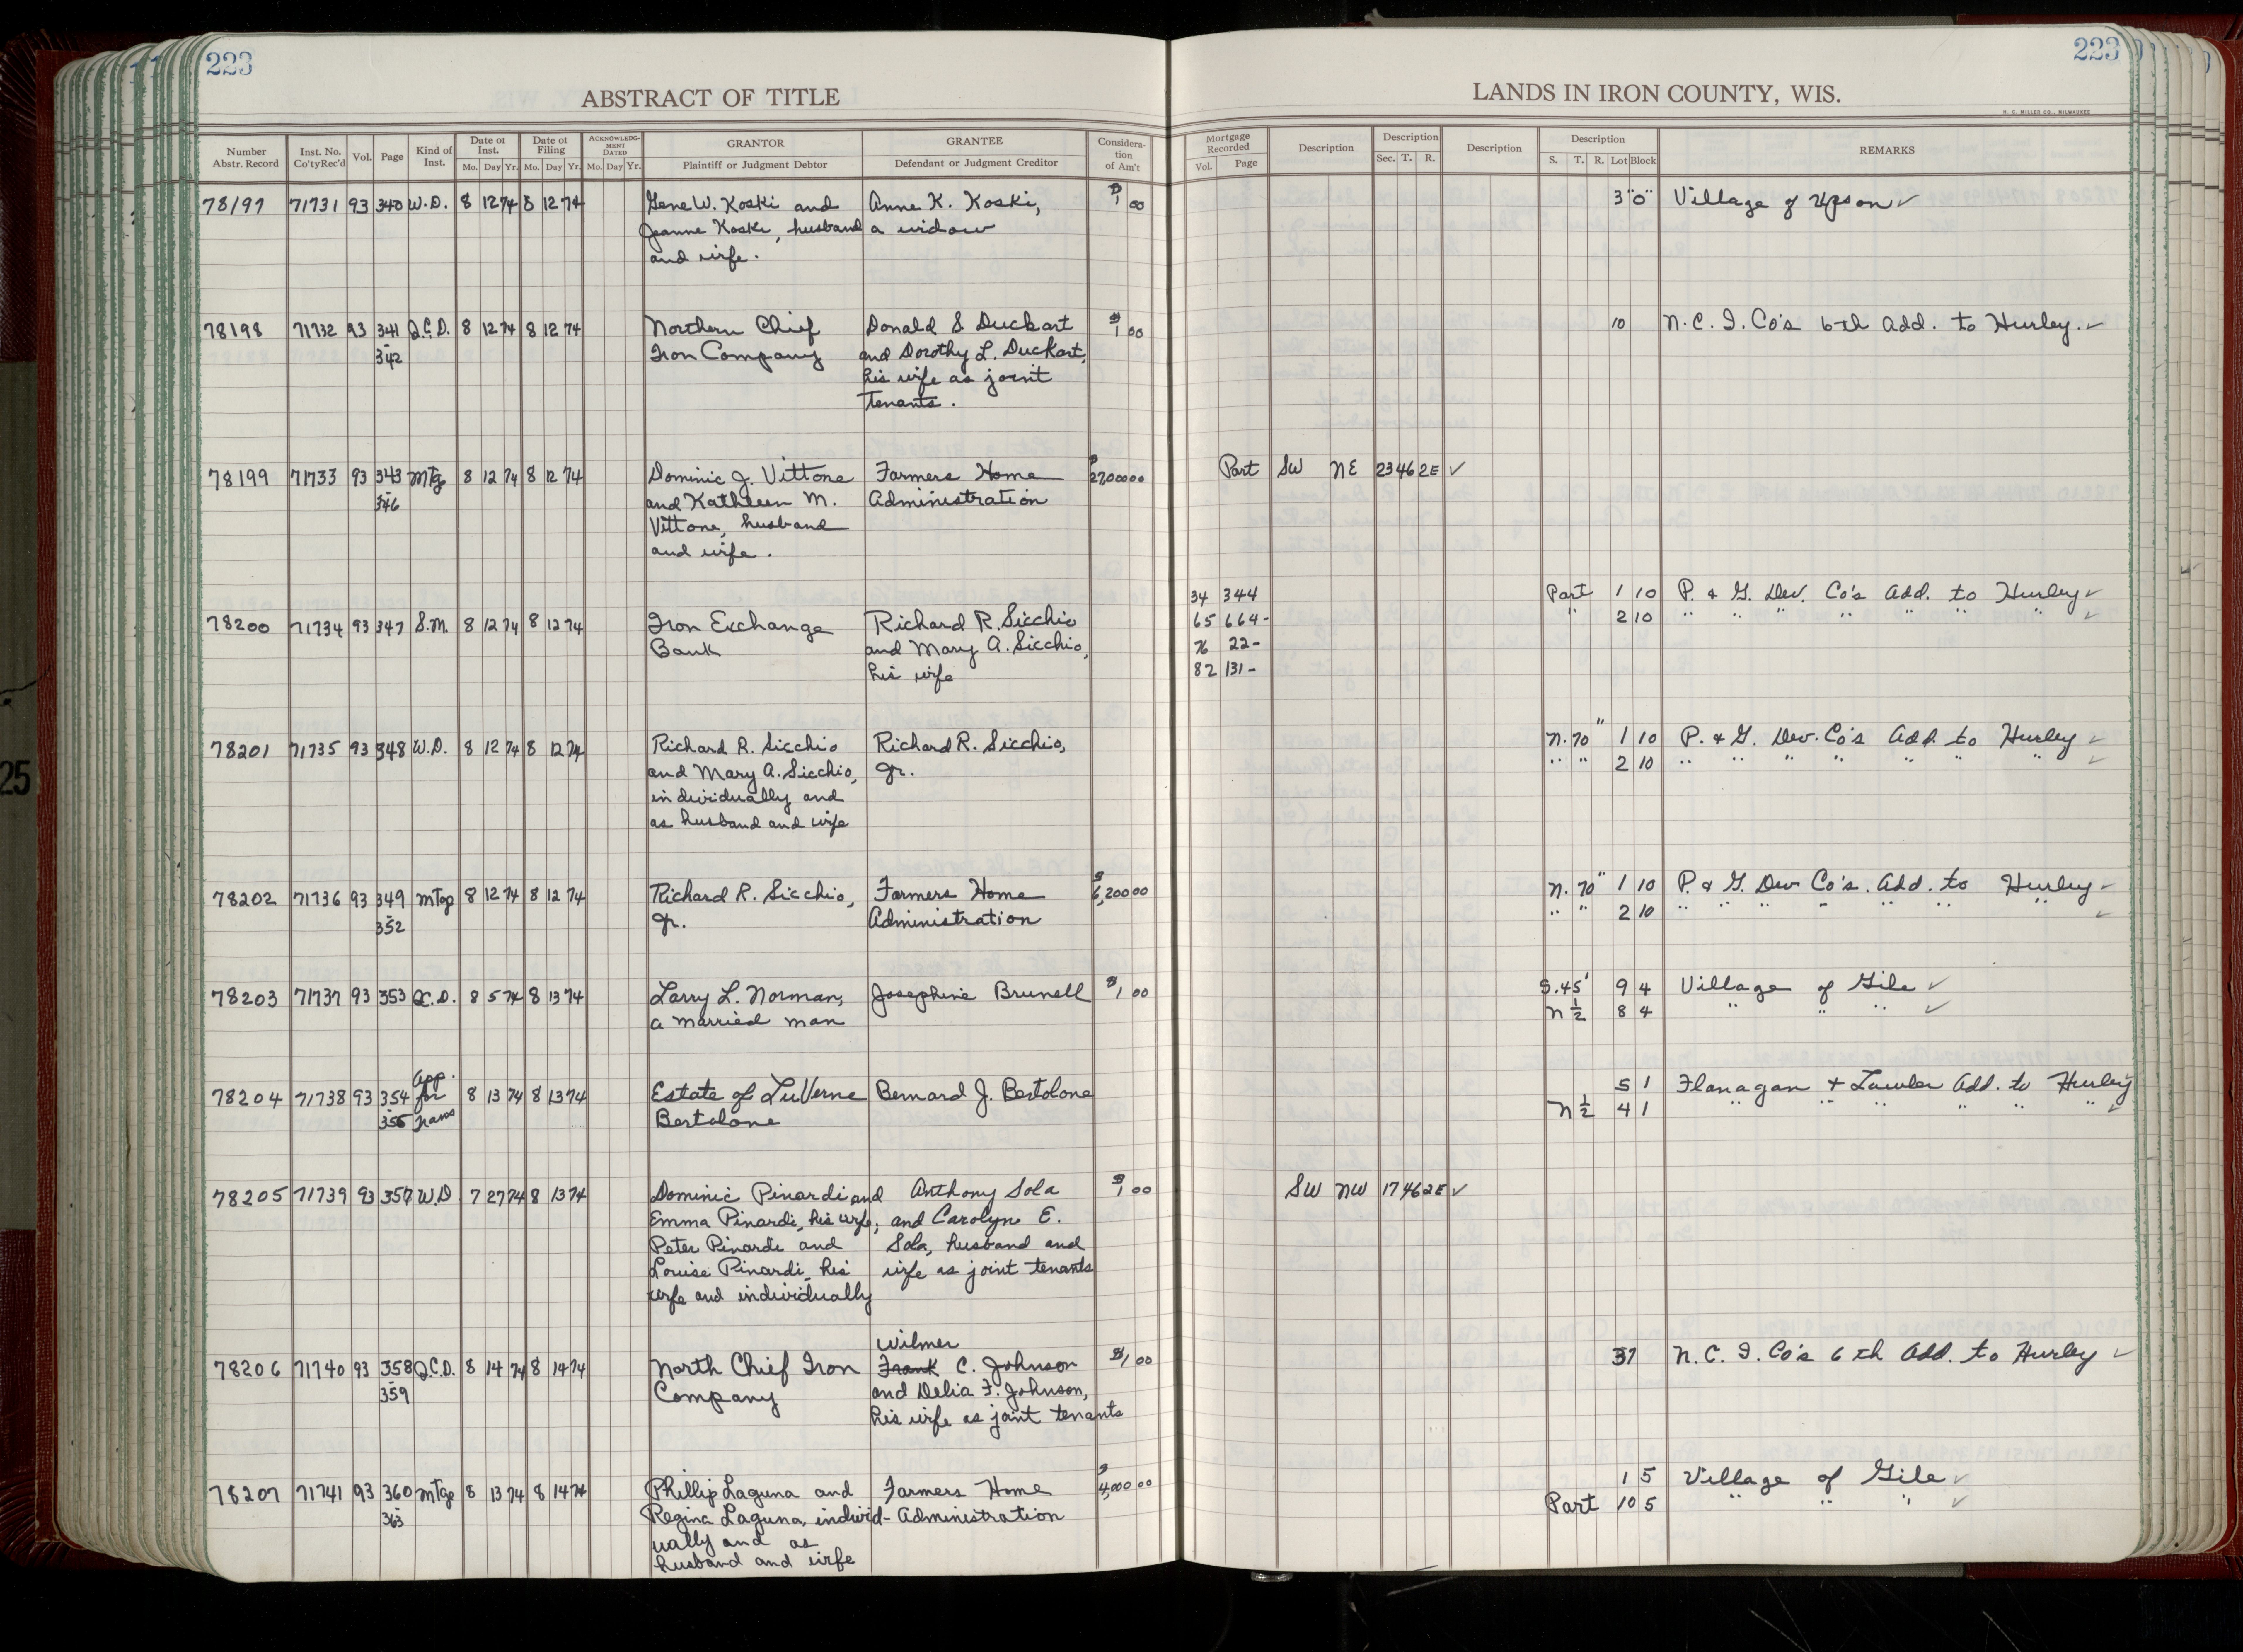 223
223
ABSTRACT OF TITLE
LANDS IN IRON COUNTY, WIS.
H. C. MILLER CO., MILWAUKEE
Number Abstr. Record | Inst. No. Co'ty Rec'd | Vol. | Page | Kind of Inst. | Date of Inst. Mo. Day Yr. | Date of Filing Mo. Day Yr. | ACKNOWLEDGMENT DATED Mo. Day Yr. | GRANTOR Plaintiff or Judgment Debtor | GRANTEE Defendant or Judgment Creditor | Consideration of Am't | Mortgage Recorded Vol. Page | Description | Description Sec. T. R. | Description | Description S. T. R. Lot Block | REMARKS
78197 71731 93 340 W.D. 8 12 74 8 12 74 Gene W. Koski and Anne K. Koski, $1 00 3 "O" Village of Upson ✓
Jeanne Koski, husband a widow
and wife.
78198 71732 93 341 Q.C.D. 8 12 74 8 12 74 Northern Chief Donald S Duckart $1 00 10 N.C.I. Co's 6th Add. to Hurley. ✓
- 342 Iron Company and Dorothy L. Duckart,
his wife as joint
Tenants.
78199 71733 93 343 Mtg 8 12 74 8 12 74 Dominic J. Vittone Farmers Home $27000 00 Part SW NE 23 46 2E ✓
- 346 and Kathleen M. Administration
Vittone, husband
and wife.
34 344 Part 1 10 P. & G. Dev. Co's Add. to Hurley ✓
78200 71734 93 347 S.M. 8 12 74 8 12 74 Iron Exchange Richard R. Sicchio 65 664- " 2 10 " " " " " " ✓
Bank and Mary A. Sicchio, 76 22-
his wife 82 131-
78201 71735 93 348 W.D. 8 12 74 8 12 74 Richard R. Sicchio Richard R. Sicchio, N. 70" 1 10 P. & G. Dev. Co's Add. to Hurley ✓
and Mary A. Sicchio, Jr. " " 2 10 " " " " " " " ✓
individually and
as husband and wife
78202 71736 93 349 Mtge 8 12 74 8 12 74 Richard R. Sicchio, Farmers Home $6,200 00 N. 70" 1 10 P. & G. Dev Co's. Add. to Hurley ✓
- 352 Jr. Administration " " 2 10 " " " " " " " ✓
78203 71737 93 353 Q.C.D. 8 5 74 8 13 74 Larry L. Norman, Josephine Brunell $1 00 S. 45' 9 4 Village of Gile ✓
a married man N ½ 8 4 " " " ✓
78204 71738 93 354 App. for Trans 8 13 74 8 13 74 Estate of LuVerne Bernard J. Bertolone 5 1 Flanagan & Lawler Add. to Hurley
- 356 Bertolone N ½ 4 1 " " " " " " ✓
78205 71739 93 357 W.D 7 27 74 8 13 74 Dominic Pinardi and Anthony Sola $1 00 SW NW 17 46 2E ✓
Emma Pinardi, his wife; and Carolyn E.
Peter Pinardi and Sola, husband and
Louise Pinardi, his wife as joint tenants
wife and individually
Wilmer
78206 71740 93 358 Q.C.D. 8 14 74 8 14 74 North Chief Iron Frank C. Johnson $1 00 37 N.C.I. Co's 6th Add. to Hurley ✓
- 359 Company and Delia F. Johnson,
his wife as joint tenants
78207 71741 93 360 Mtge 8 13 74 8 14 74 Phillip Laguna and Farmers Home $4,000 00 1 5 Village of Gile ✓
- 363 Regina Laguna, individ- Administration Part 10 5 " " " ✓
ually and as
husband and wife
25